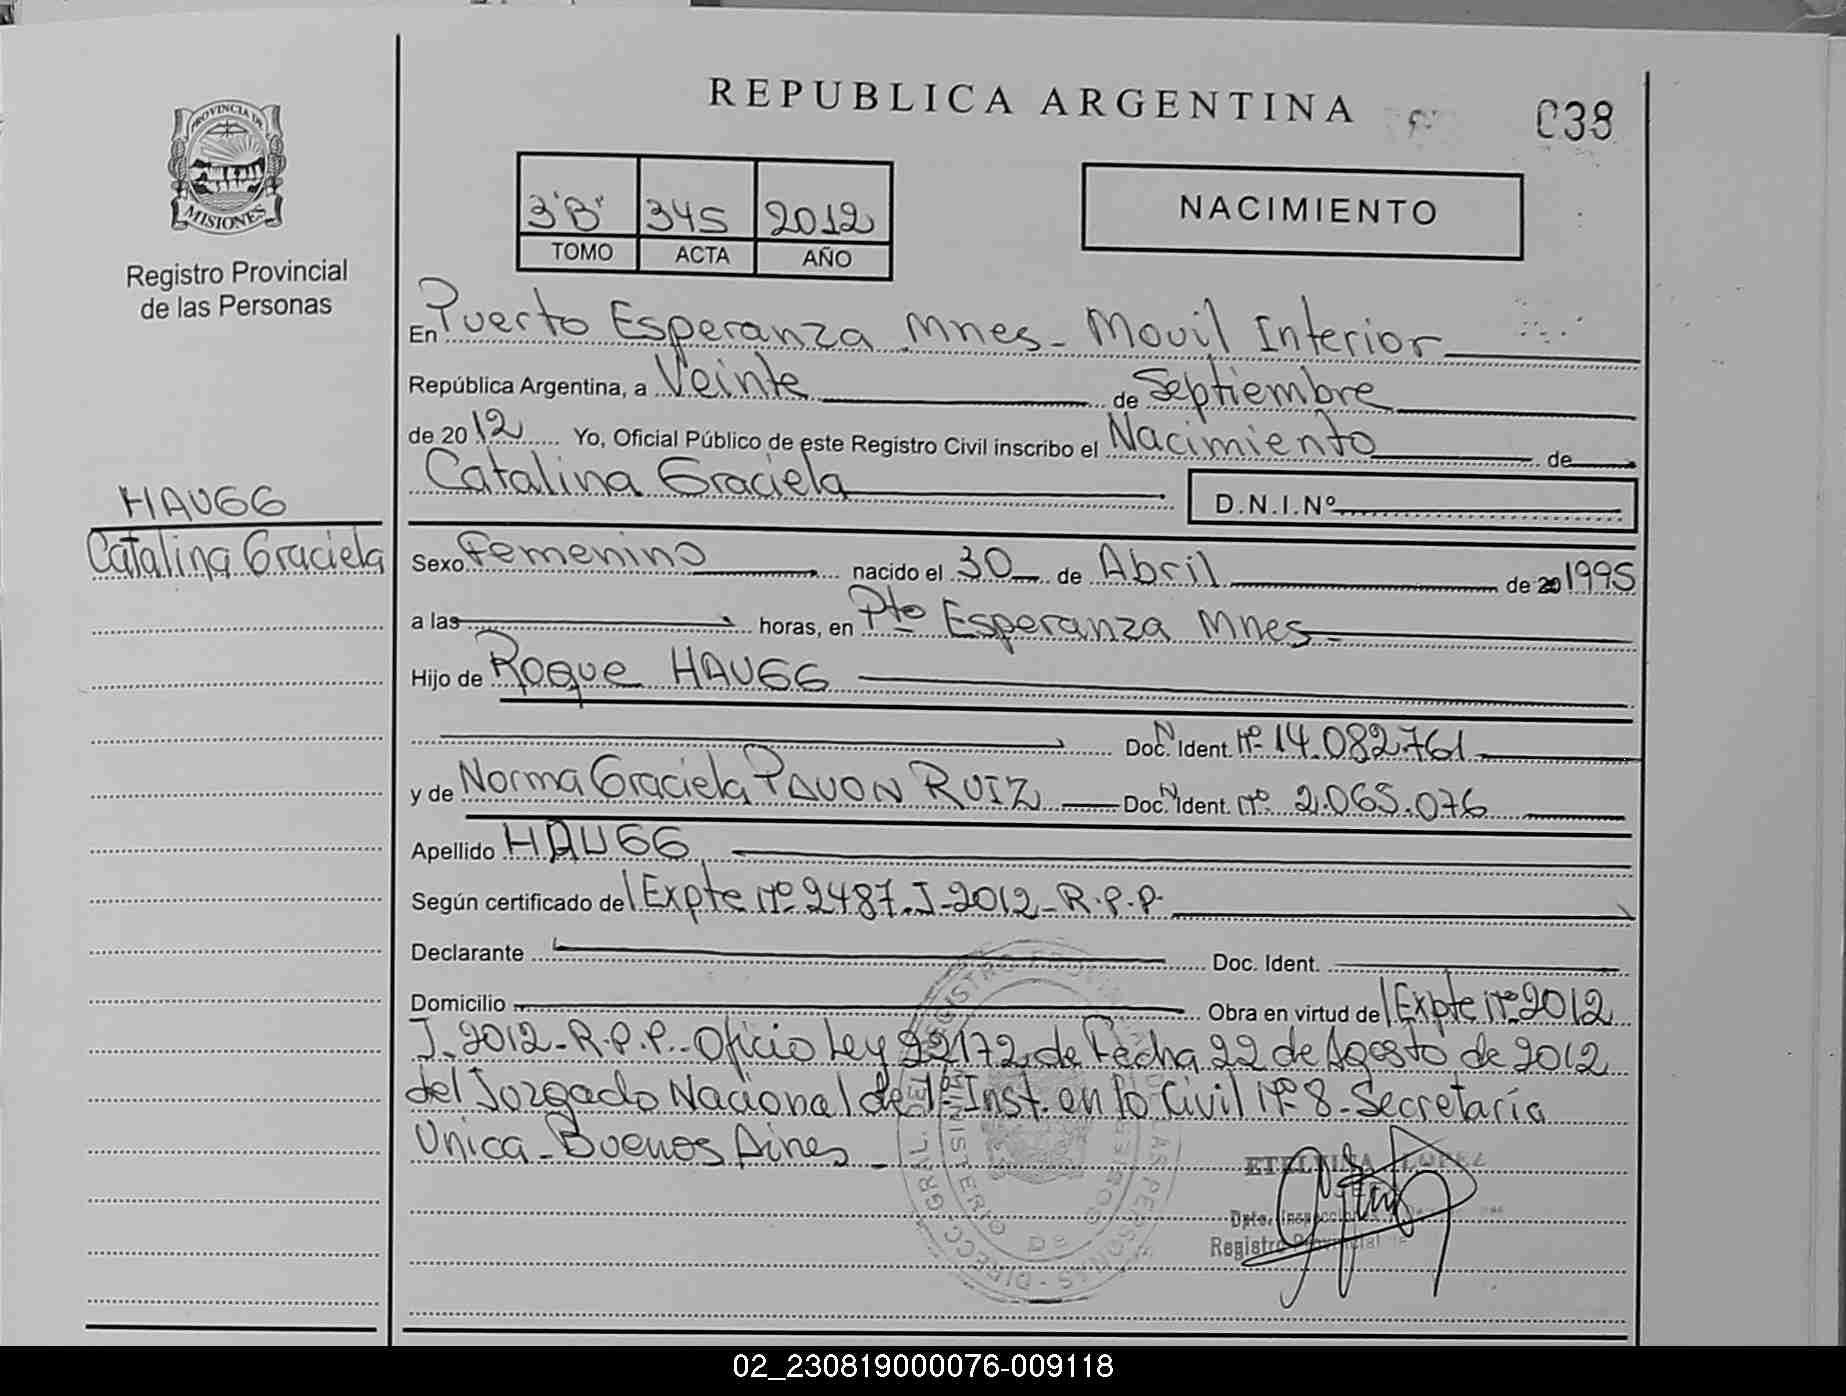 REPUBLICA ARGENTINA
038
PROVINCIA DE
MISIONES
Registro Provincial
de las Personas
3 "B" 345 2012
TOMO ACTA AÑO
NACIMIENTO
En Puerto Esperanza Mnes - Movil Interior
República Argentina, a Veinte de Septiembre
de 2012 Yo, Oficial Público de este Registro Civil inscribo el Nacimiento de
Catalina Graciela D.N.I.Nº
HAUGG
Catalina Graciela
Sexo Femenino nacido el 30 de Abril de 20 1995
a las horas, en Pto Esperanza Mnes -
Hijo de Roque HAUGG
Doc. N Ident. Nº 14.082.761
y de Norma Graciela PAVON RUIZ Doc. N Ident. Nº 2.065.076
Apellido HAUGG
Según certificado de Expte Nº 2487-J-2012-R.P.P.
Declarante Doc. Ident.
Domicilio Obra en virtud de Expte Nº 2012
J-2012-R.P.P.- Oficio Ley 22172 de Fecha 22 de Agosto de 2012
del Juzgado Nacional de 1º Inst. en lo Civil Nº 8 - Secretaría
Unica - Buenos Aires -
ETELVINA LOPEZ
Dpto. Inspecciones
Registro Provincial
02_230819000076-009118